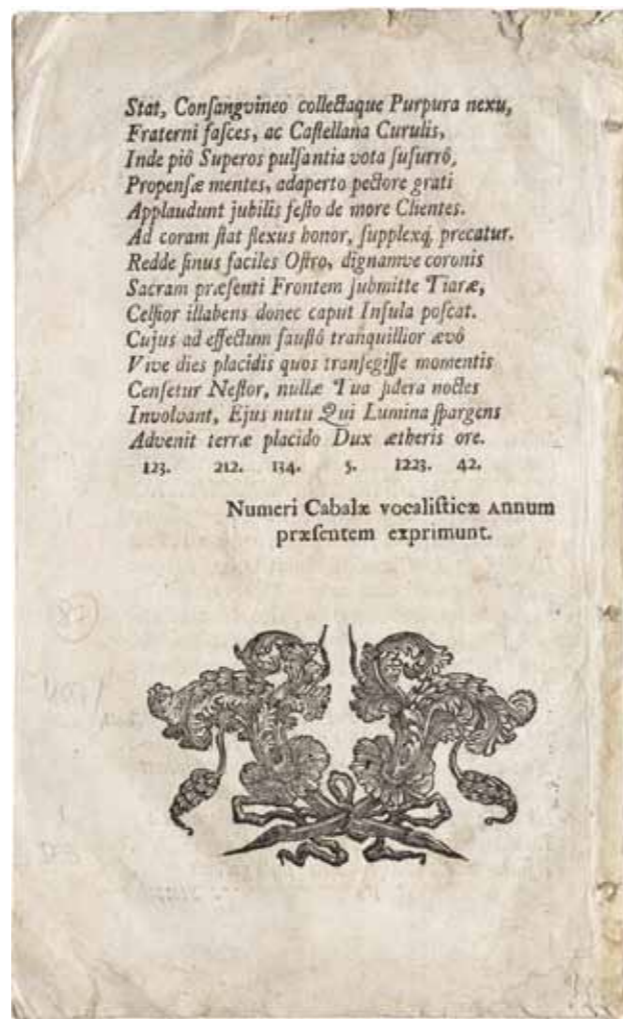 Stat, Conſangvineo collectaque Purpura nexu,
Fraterni faſces, ac Caſtellana Curulis,
Inde piô Superos pulſantia vota ſuſurrô,
Propenſæ mentes, adaperto pectore grati
Applaudunt jubilis feſto de more Clientes.
Ad coram ſtat flexus honor, ſupplexq; precatur.
Redde ſinus faciles Oſtro, dignamve coronis
Sacram præſenti Frontem ſubmitte Tiaræ,
Celſior illabens donec caput Inſula poſcat.
Cujus ad effectum fauſtô tranquillior ævô
Vive dies placidis quos tranſegiſſe momentis
Cenſetur Neſtor, nullæ Tua ſidera noctes
Involvant, Ejus nutu Qui Lumina ſpargens
Advenit terræ placido Dux ætheris ore.
123. 212. 134. 5. 1223. 42.
Numeri Cabalæ vocaliſticæ Annum
præſentem exprimunt.